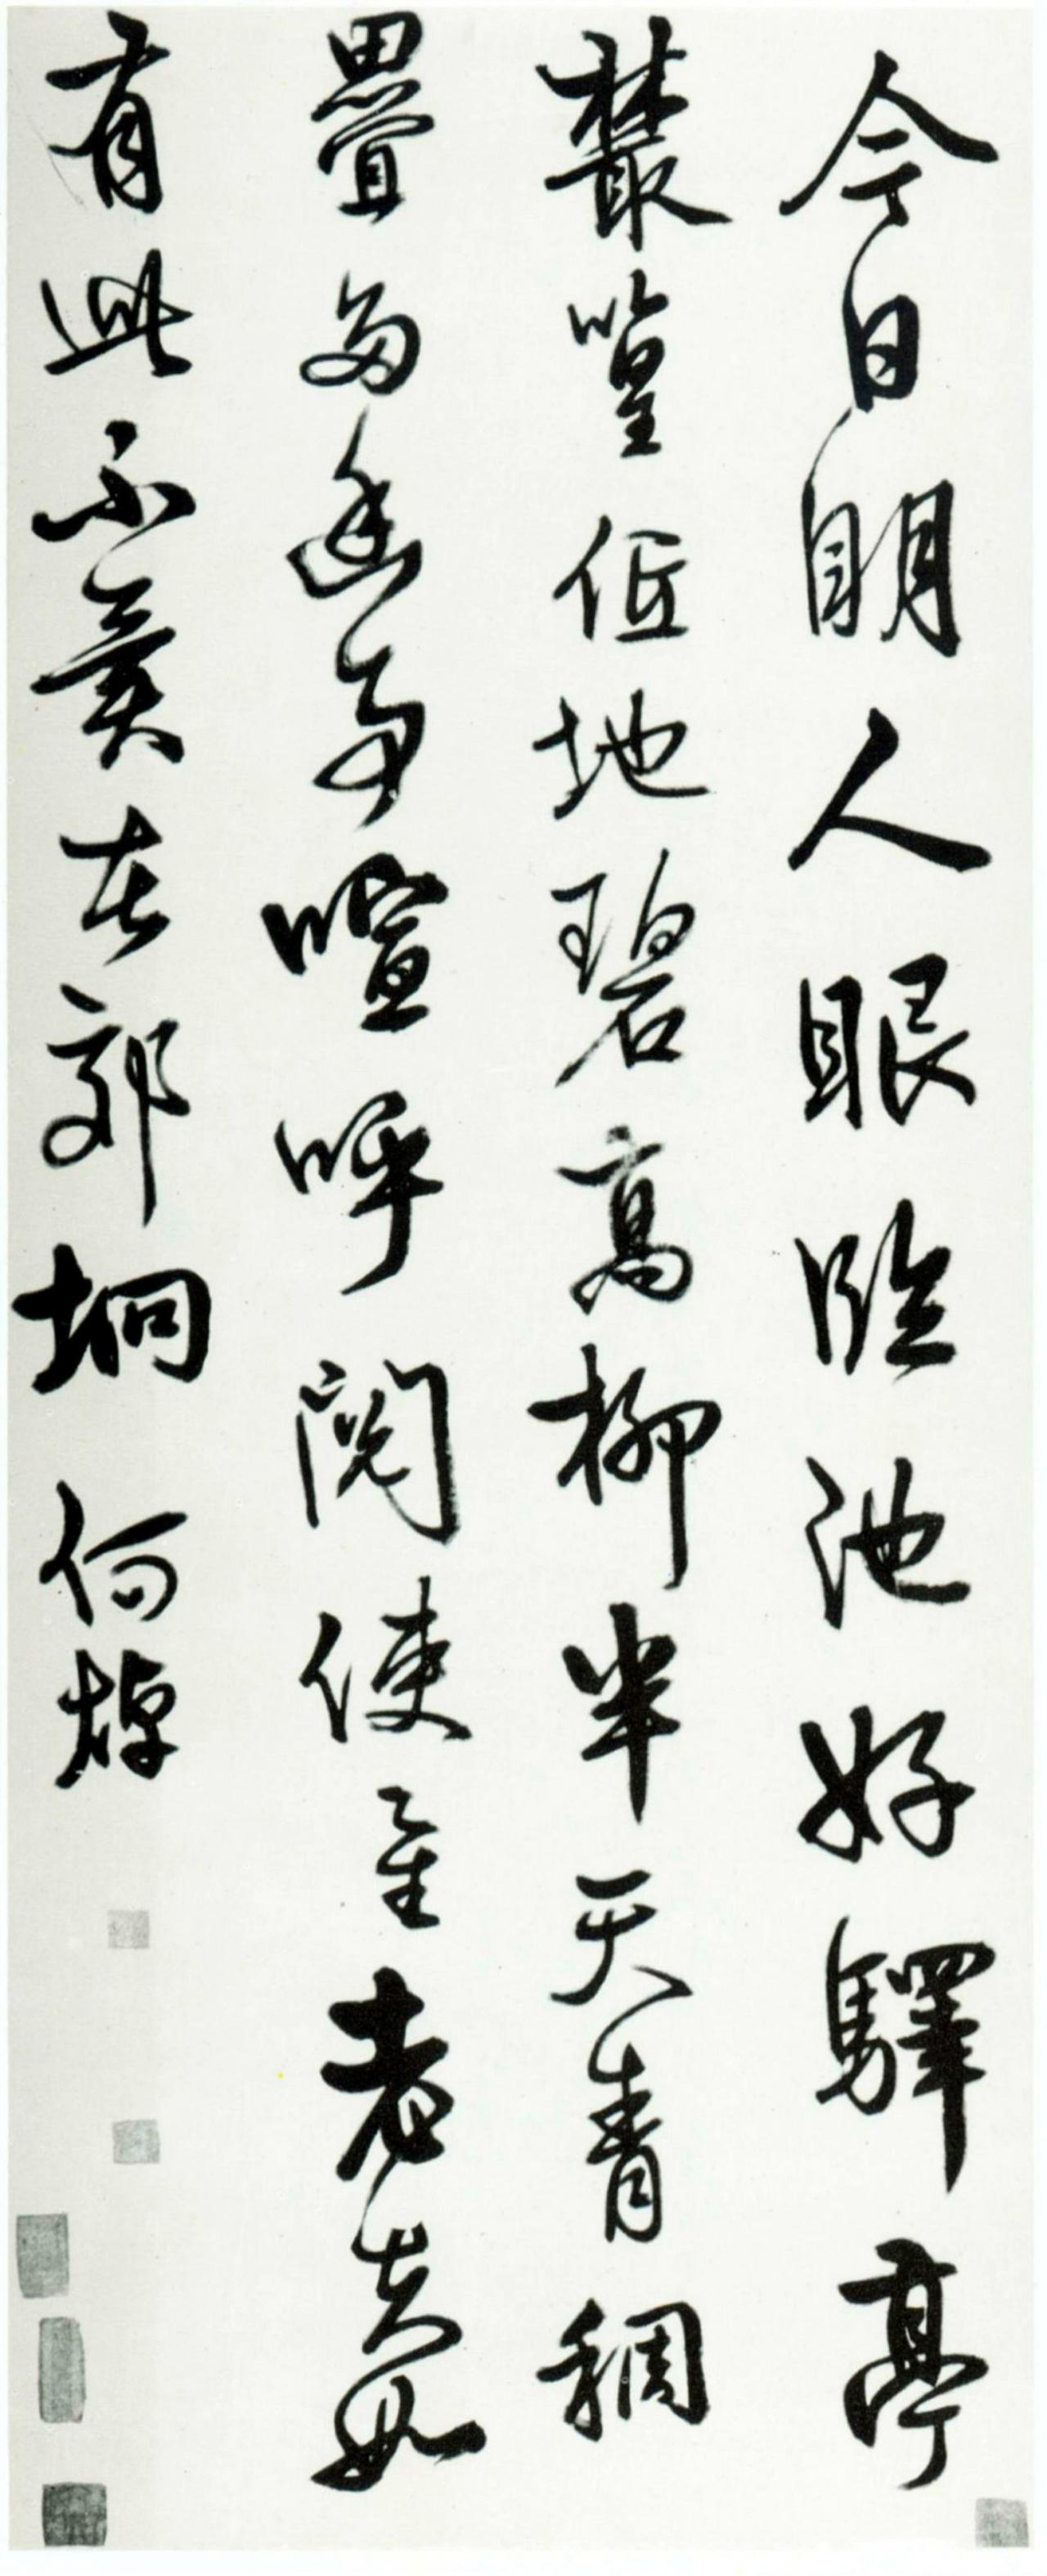 今日明人眼臨池好驛亭
叢篁低地碧高柳半天青稠
疊多幽事喧呼閱使星老夫如
有此不異在郊坰 何焯